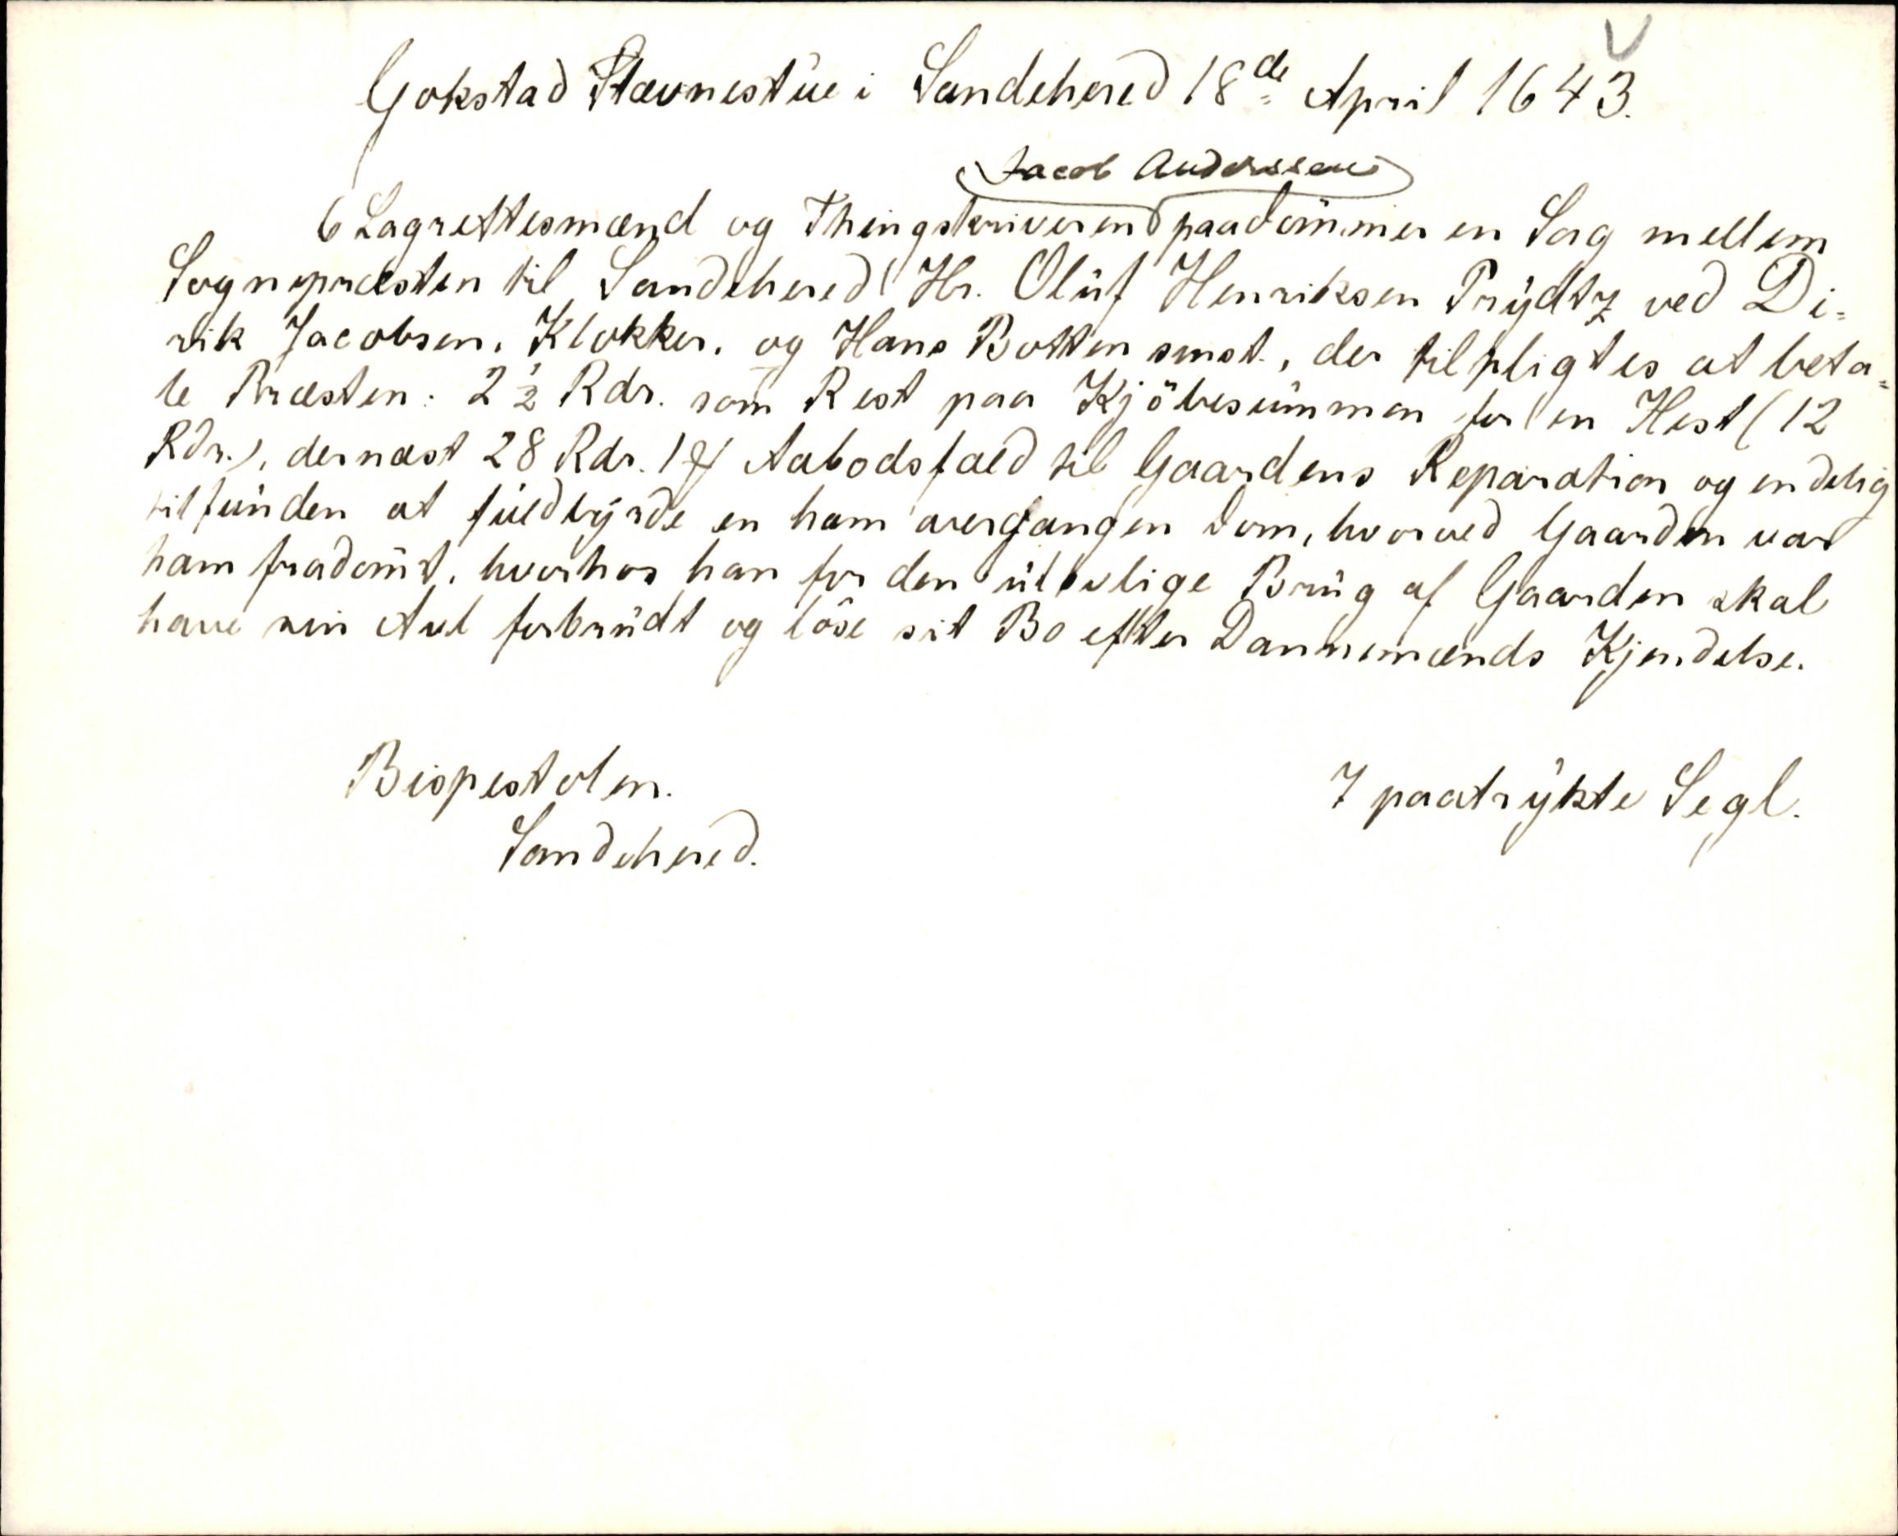 Gokstad Stævnestue i Sandehered 18de April 1643.
Jacob Anderssen
6 Lagrettesmænd og Thingskriveren paadömmer en Sag mellem
Sognepræsten til Sandehered Hr. Oluf Henriksen Prydtz ved Di-
rik Jacobsen, Klokker, og Hans Botten smst., der tilpligtes at beta-
le Præsten: 2 1/2 Rdr. som Rest paa Kjöbesummen for en Hest (12
Rdr.), dernæst 28 Rdr. 1 Aabodsfald til Gaardens Reparation og endelig
tilfunden at fuldbyrde en ham overgangen Dom, hvorved Gaarden var
ham fradömt, hvorhos han for den ulovlige Brug af Gaarden skal
have sin Avl forbrudt og löse sit Bo efter Dannemænds Kjendelse.
Bispestolen.
7 paatrykte Segl.
Sandehered.